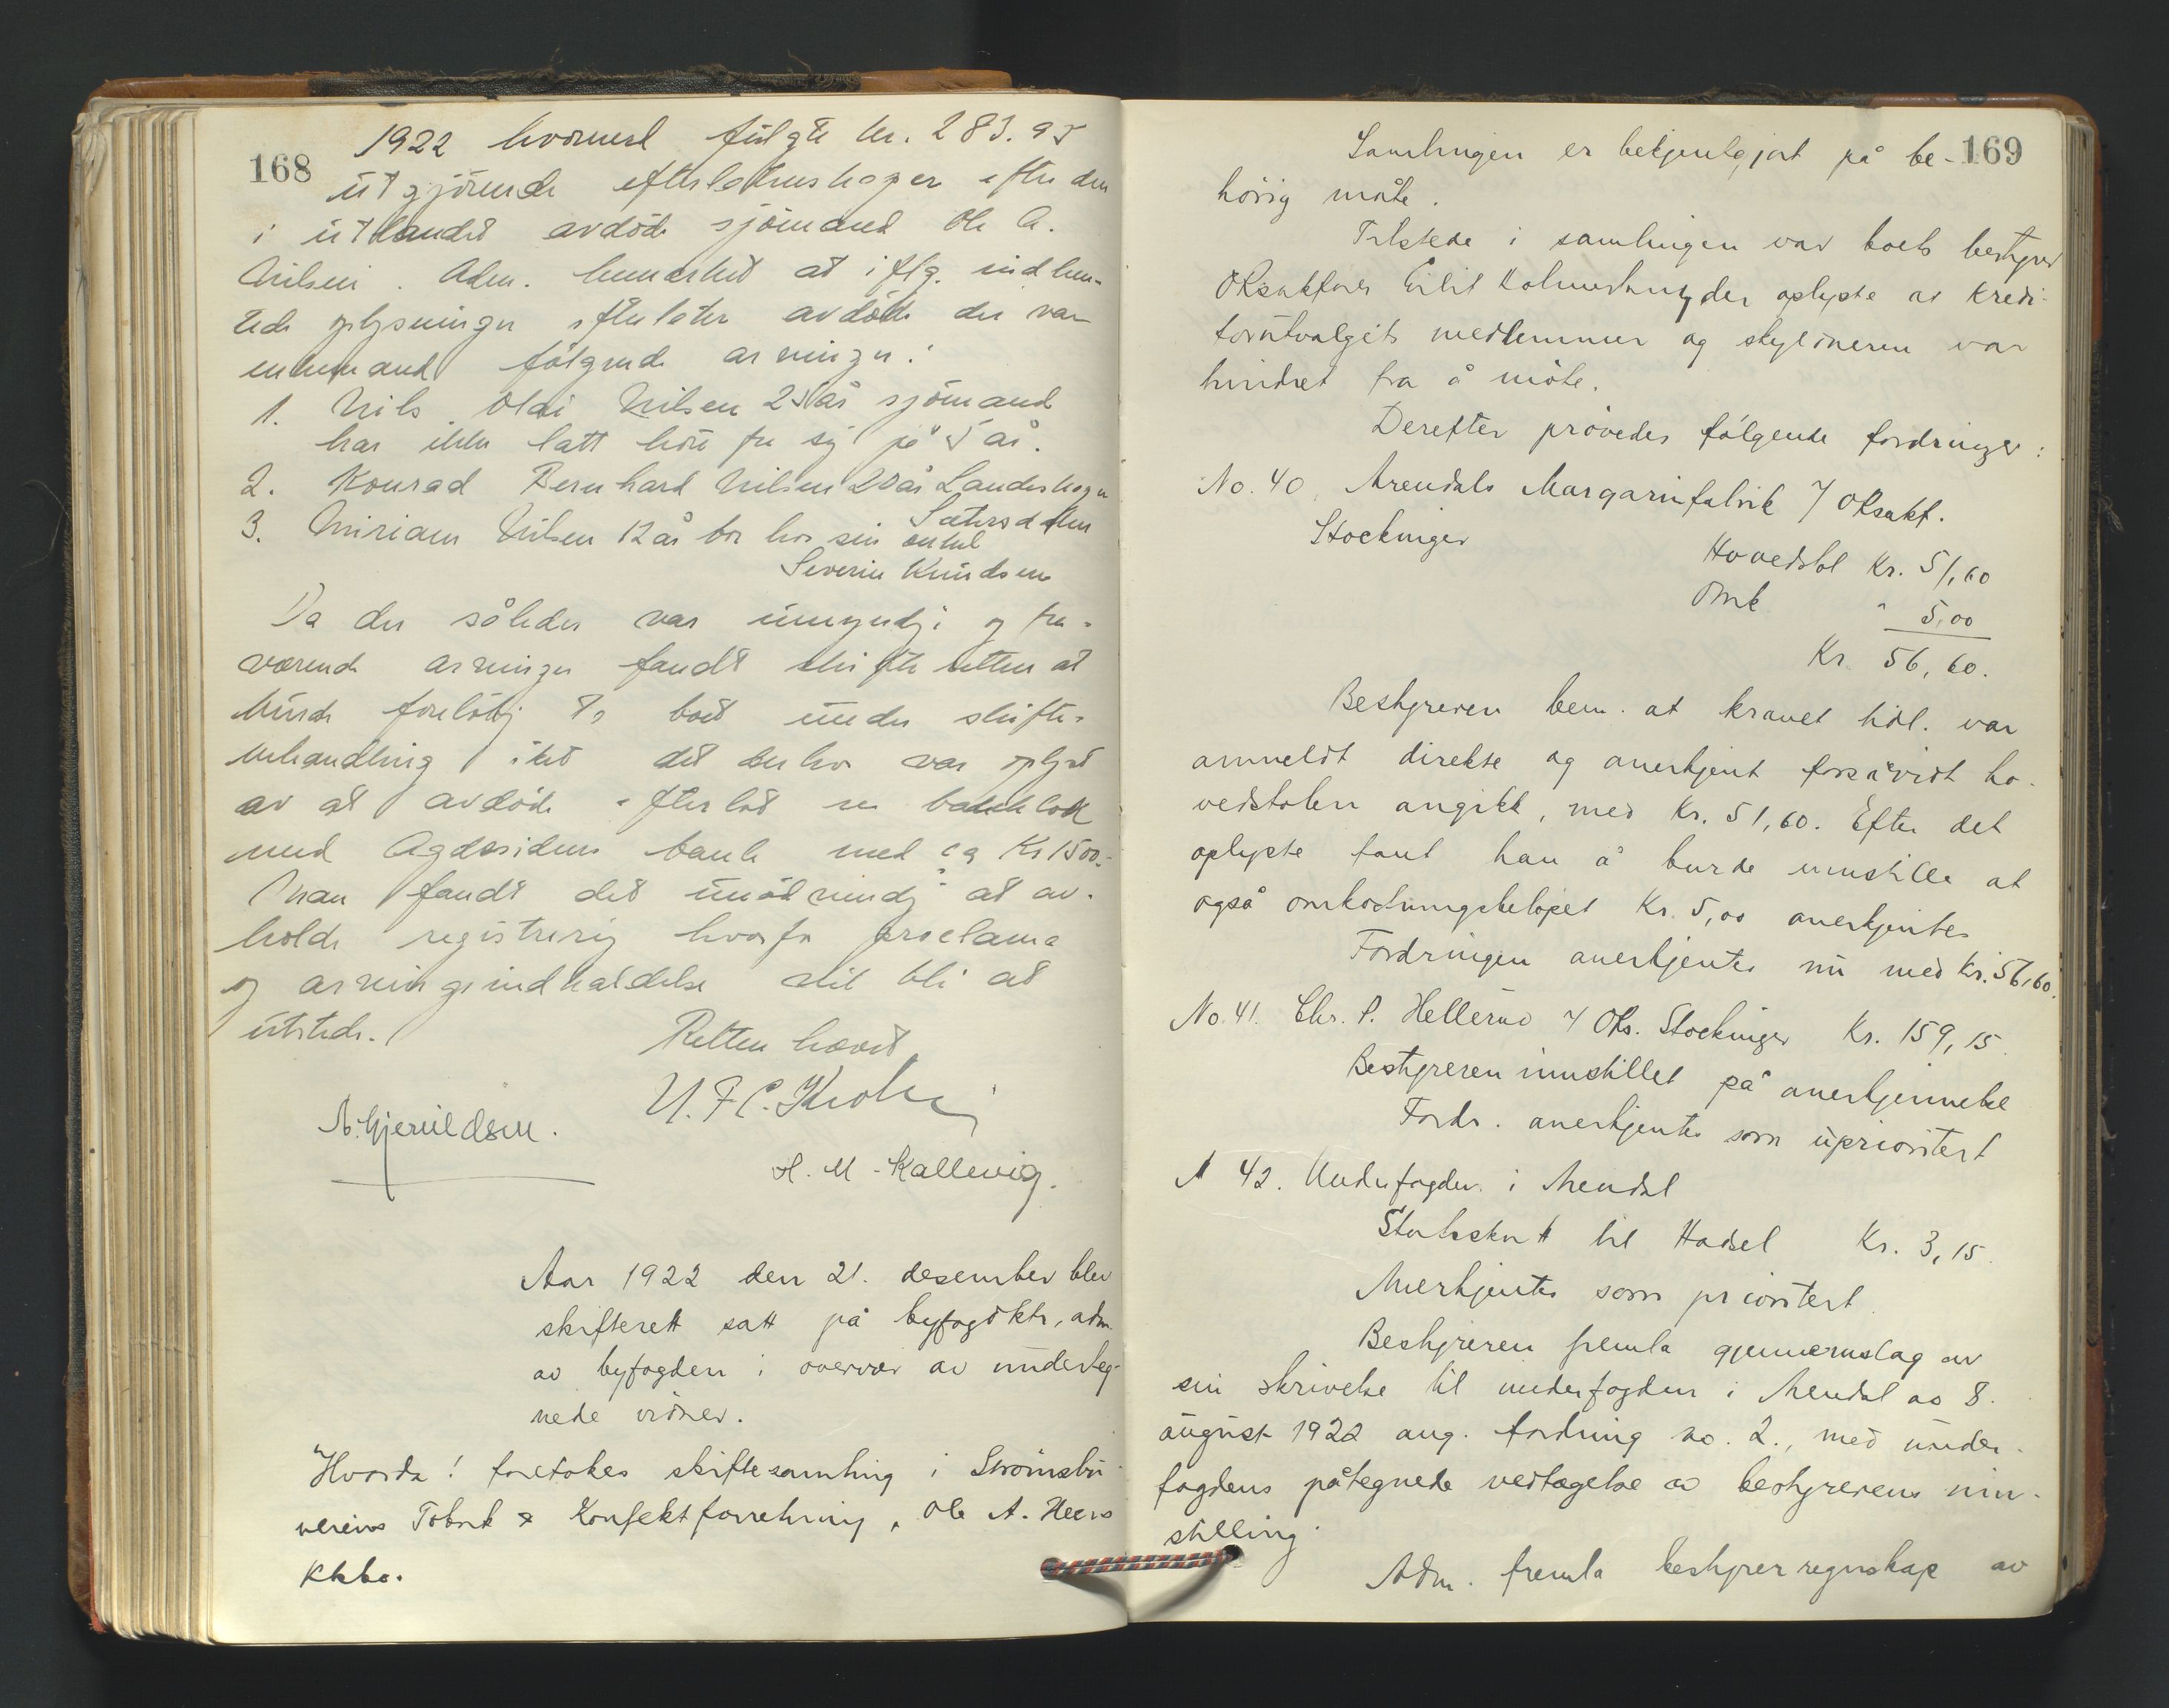 168
1922 hvormed fulgte kr. 283.95
utgjörende efterladenskaper efter den
i utlandet avdöde sjömand Ole A.
Nilsen. Adm. bemerket at iflg. indhen-
tede oplysninger efterlater avdöde der var
enkemand følgende arvinger:
1. Nils Olai Nilsen 25 år sjömand
har ikke latt höre fra sig på 5 år.
2. Konrad Bernhard Nilsen 20 år Landeskogen
Sætersdalen
3. Miriam Nilsen 12 år bor hos sin onkel
Severin Knudsen
Da der således var umyndige og fra-
værende arvinger fandt skifteretten at
burde foreløbig ta boet under skifte-
behandling idet det derhos var oplyst
av at avdöde efterlot en bankbok
med Agdesidens bank med ca Kr 1500.-
Man fandt det unödvendig at av-
holde registrering hvorfor proclama
og arvingsindkaldelse vil bli at
utstede.
Retten hævet
N. Hjerüldsen.
H. M. Kallevig.
Aar 1922 den 21. desember blev
skifterett satt på byfogdktr, adm.
av byfogden i overvær av underteg-
nede vidner.
Hvorda! foretokes skiftesamling i Strömsbu-
verens Tobak & Konfektforretning, Ole A. Heens
Kkbo.
169
Samlingen er bekjentgjort på be-
hörig måte.
Tilstede i samlingen var boets bestyrer
ORsakfører Eilif Holmesland, der oplyste at kredi-
torutvalgets medlemmer og skyldneren var
hindret fra å möte.
Derefter prövedes fölgende fordringer:
No. 40. Arendals Margarinfabrik v/ ORsakf.
Stockinger
Hovedstol Kr. 51,60
Omk " 5,00
Kr. 56,60.
Bestyreren bem. at kravet tidl. var
anmeldt direkte og anerkjent forsåvidt ho-
vedstolen angikk, med Kr. 51,60. Efter det
oplyste fant han å burde innstille at
også omkostningsbelöpet Kr. 5,00 anerkjentes
Fordringen anerkjentes nu med Kr. 56,60.
No. 41. Chr. P. Hellesund v/ ORs. Stockinger Kr. 159,15.
Bestyreren innstillet på anerkjennelse
Fordr. anerkjentes som uprioritert
N 42. Underfogden i Arendal
Statsskatt til Hadsel Kr. 3,15.
Anerkjentes som prioritert.
Bestyreren fremla gjennemslag av
sin skrivelse til underfogden i Arendal av 8.
august 1922 ang. fordring no. 2., med under-
fogdens påtegnede vedtagelse av bestyrerens inn-
stilling.
Adm. fremla bestyrerregnskap av